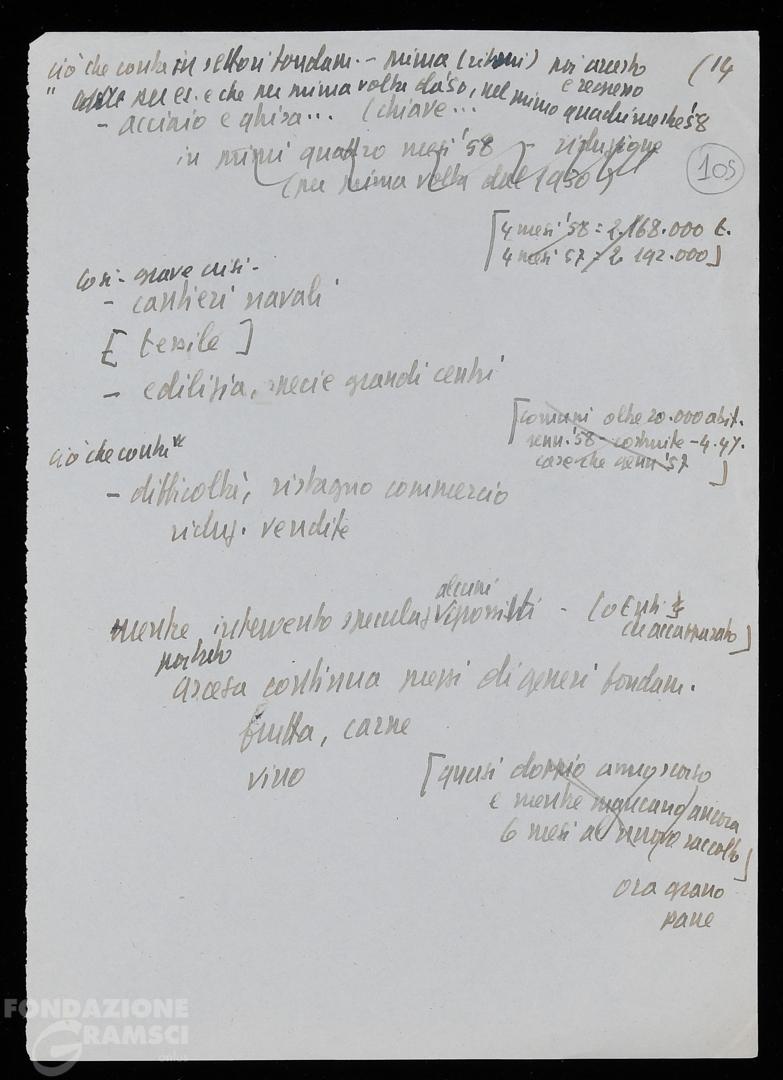 ciò che conta in settori fondam. - prima (ritmi) poi arresto (14
e regresso
" per es. e che per prima volta da '50, nel primo quadrimestre '58
- acciaio e ghisa... (chiave...
in primi quattro mesi '58 - riduzione
(per prima volta dal 1950)
105
[4 mesi '58 = 2.168.000 t.
4 mesi 57 = 2 192.000]
Così - grave crisi -
- cantieri navali
[tessile]
- edilizia, specie grandi centri
[comuni oltre 20.000 abit.
genn. '58 - costruite - 4.4%
case che genn '57
]
ciò che conta
- difficoltà, ristagno commercio
riduz. vendite
alcuni
mentre intervento speculaz -
accaparrato]
portato
ascesa continua prezzi di generi fondam.
frutta, carne
vino
[quasi doppio anno scorso
e mentre mancano ancora
6 mesi al nuovo raccolto]
ora grano
pane
FONDAZIONE
GRAMSCI
onlus